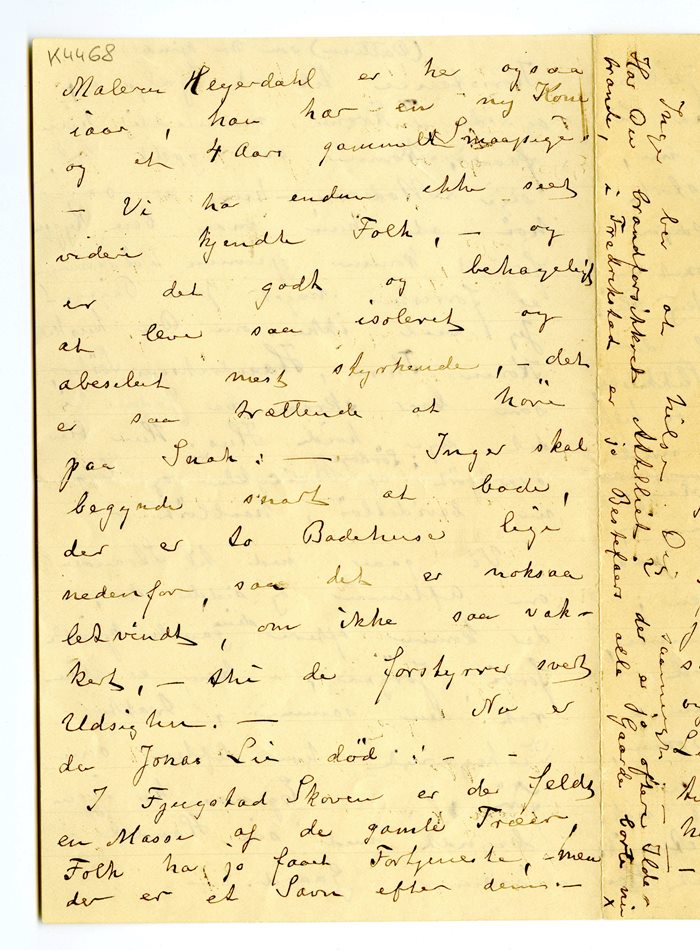 K4468
Maleren Heyerdahl er her ogsaa
iaar, han har en ny Kone
og et 4 Aars gammelt Smaapige.
— Vi ha endnu ikke seet
videre kjendte Folk, — og
er det godt og behageligt
at leve saa isoleret og
abeselut mest styrkende, — det
er saa trættende at höre
paa Snak: — Inger skal
begynde snart at bade,
der er to Badehuse lige
nedenfor, saa det er noksaa
letvindt, om ikke saa vak-
kert, — thi de forstyrrer svert
Udsigten. — Nu er
da Jonas Lie död: — -
I Fjugstad Skoven er de feldt
en Masse af de gamle Træer,
Folk ha jo faaet Fortjeneste, — men
der er et Savn efter dem: —
Inger ber at hilse Dig
Har Du brandforsikkret Attelliet? der er jo oftere Ilde-
brande, i Fredrikstad er jo Bestefaers alle Gaarde borte nu
x